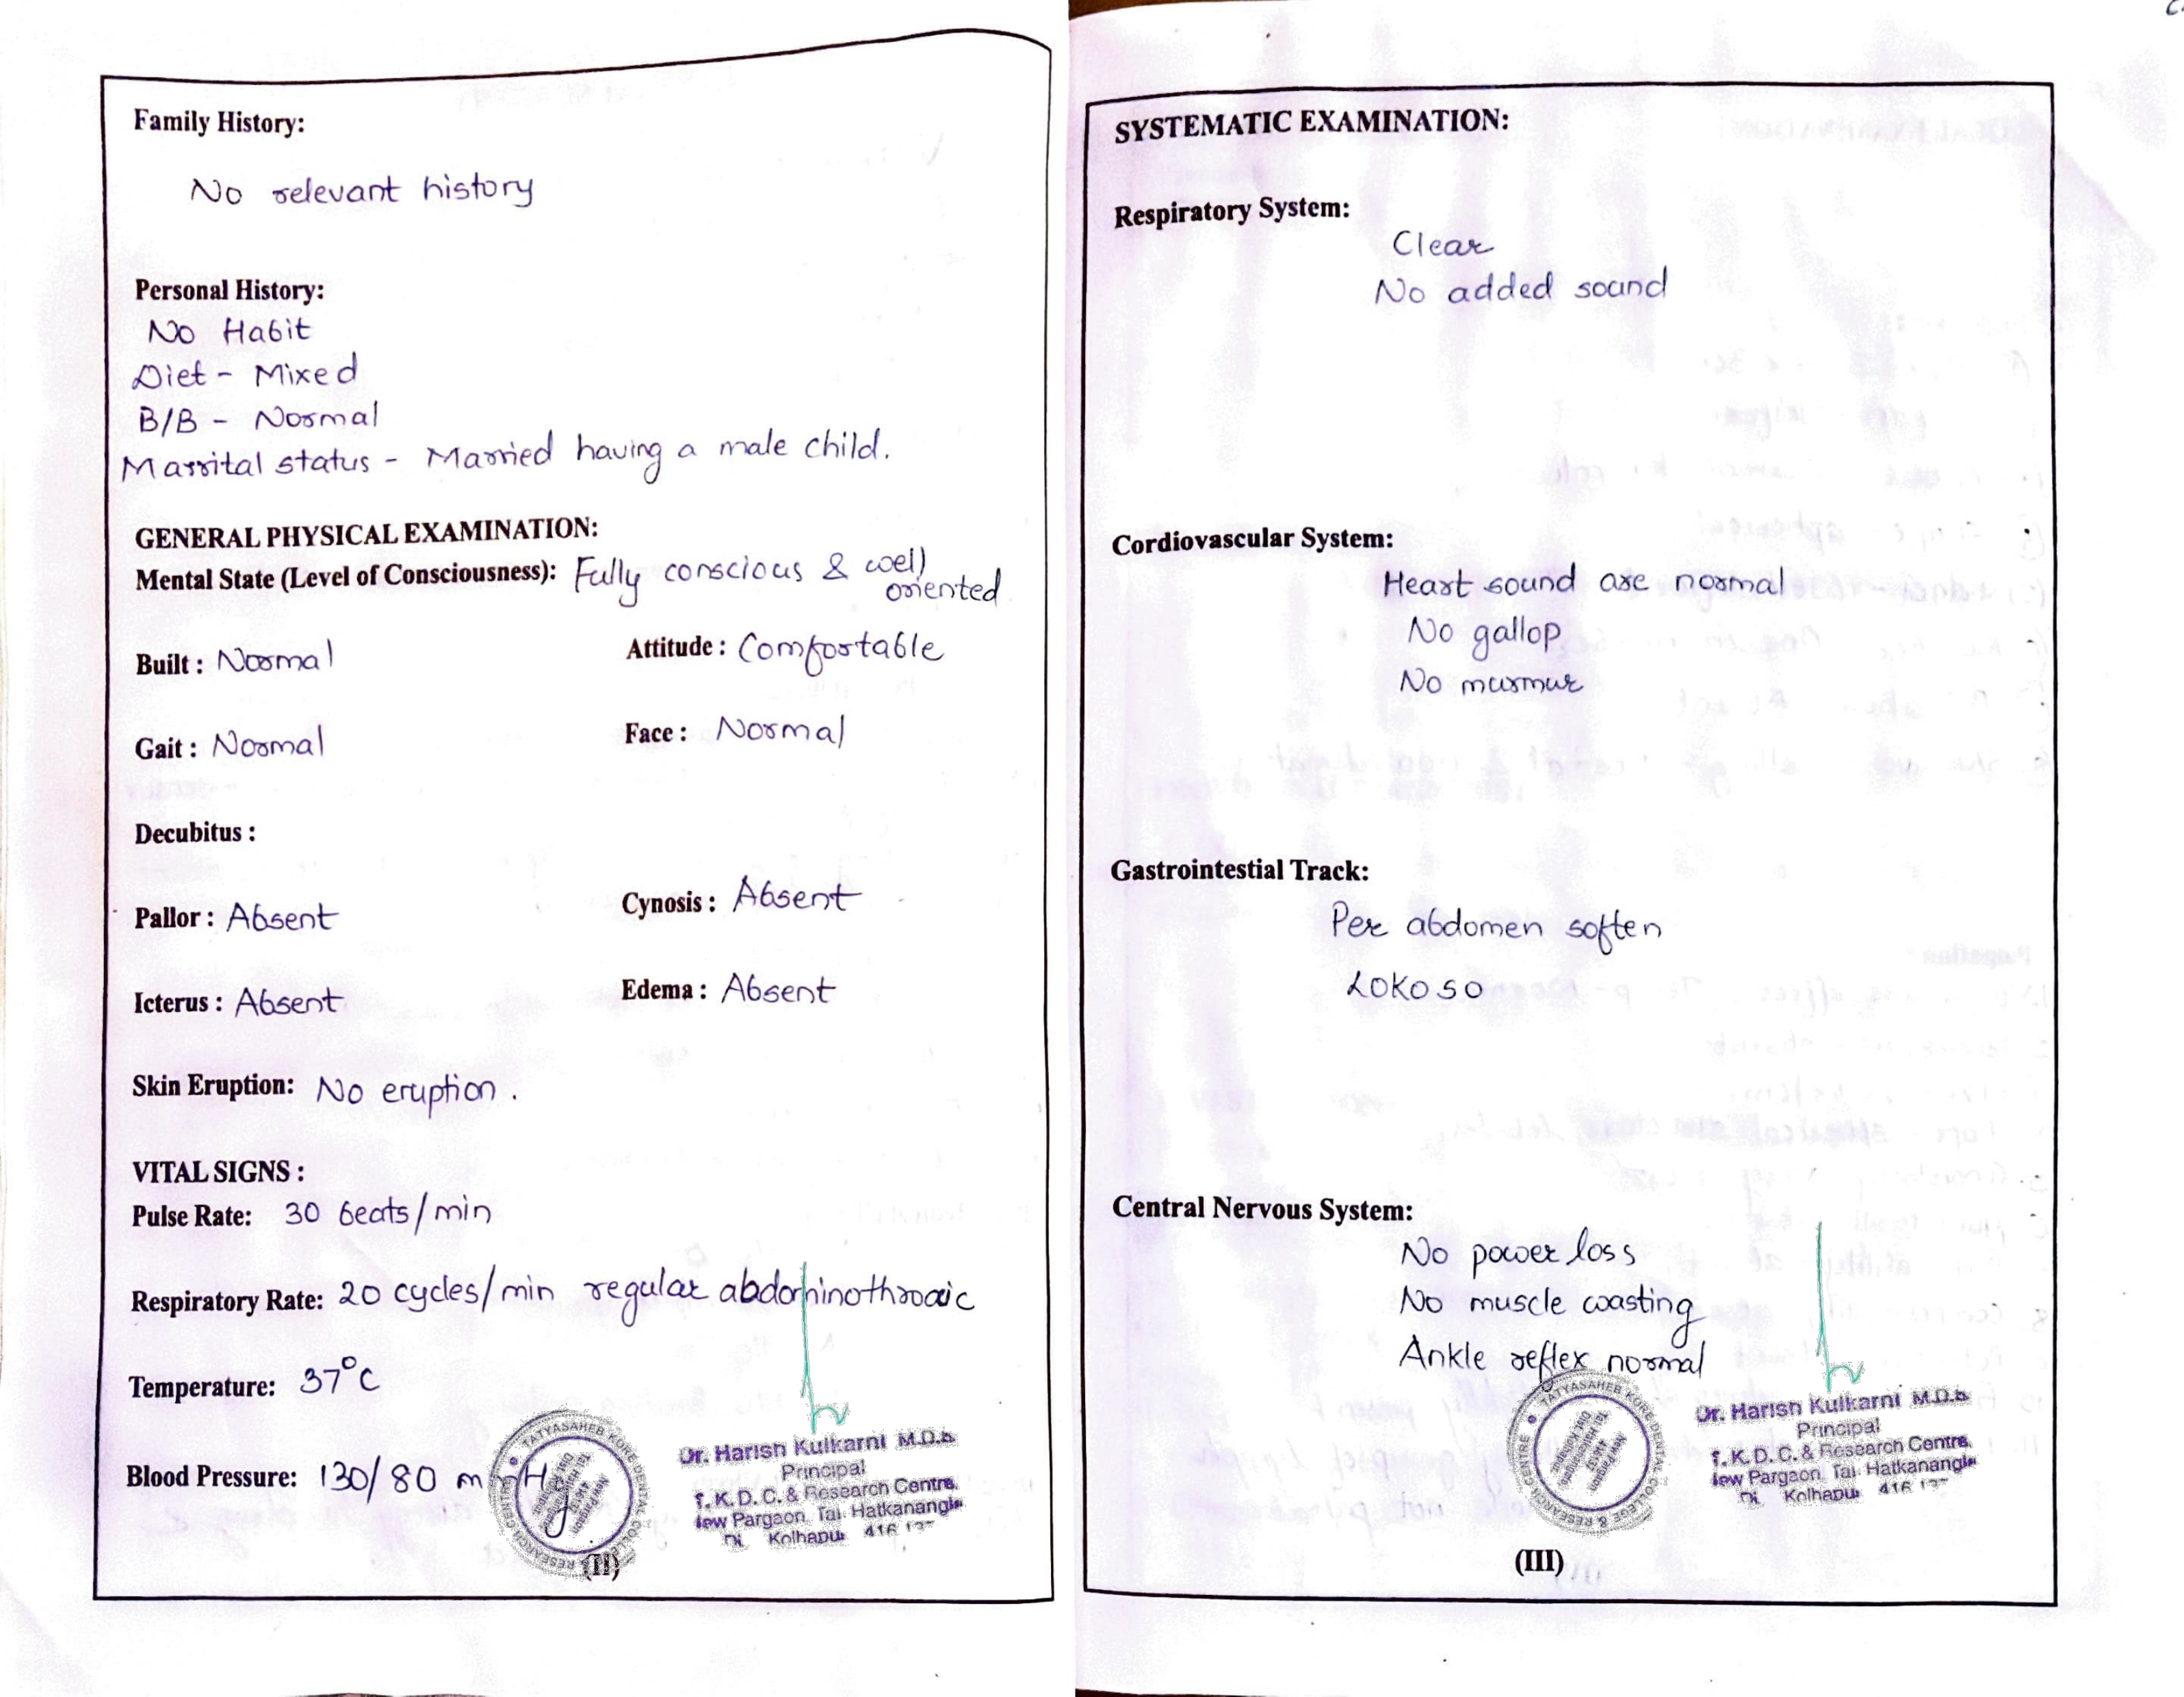 Family History:
No relevant history
Personal History:
No Habit
Diet - Mixed
B/B - Normal
Marrital status - Married having a male child.
GENERAL PHYSICAL EXAMINATION:
Mental State (Level of Consciousness): Fully conscious & well oriented
Built : Normal Attitude : Comfortable
Gait : Normal Face : Normal
Decubitus :
Pallor : Absent Cynosis : Absent
Icterus : Absent Edema : Absent
Skin Eruption: No eruption.
VITAL SIGNS :
Pulse Rate: 30 beats/min
Respiratory Rate: 20 cycles/min regular
Temperature: 37°C
Blood Pressure: 130/80
TATYASAHEB KORE DENTAL COLLEGE & RESEARCH CENTRE
Dr. Harish Kulkarni M.D.S.
Principal
T.K.D.C. & Research Centre,
New Pargaon, Tal: Hatkanangle
Kolhapur 416
(II)
SYSTEMATIC EXAMINATION:
Respiratory System:
Clear
No added sound
Cordiovascular System:
Heart sound are normal
No gallop
No murmur
Gastrointestial Track:
Per abdomen soften
LOKOSO
Central Nervous System:
No power loss
No muscle wasting
Ankle reflex normal
TATYASAHEB KORE DENTAL COLLEGE & RESEARCH CENTRE
Dr. Harish Kulkarni M.D.S.
Principal
T.K.D.C. & Research Centre,
New Pargaon, Tal: Hatkanangle
Kolhapur 416
(III)